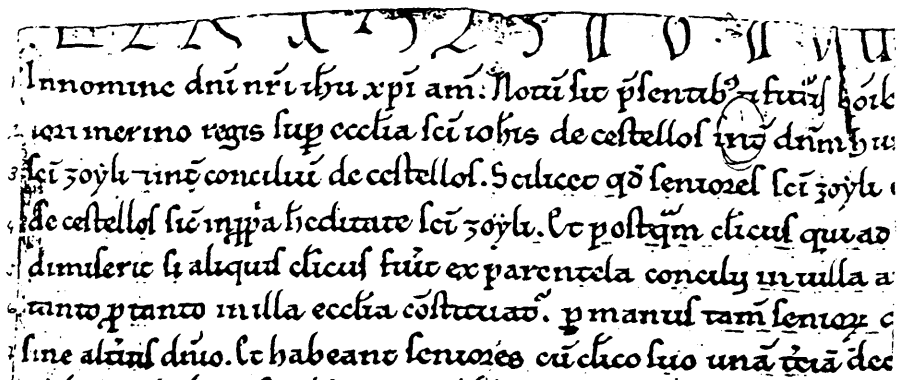 In nomine dn̄i nr̄i ih̄u xp̄i am̄. Notū sit p̄sentib⁹ ⁊ futuris
merino regis sup eccl̄ia sc̄i ioh̄is de cestellos int̄ dn̄m
sc̄i zoyli ⁊ int̄ conciliū de cestellos. Scilicet qd̄ seniores sc̄i zoyli
de cestellos sic̄ in ꝓp̄a h̄editate sc̄i zoyli. Et postq̄m cl̄icus qui ad
dimiserit si aliquis cl̄icus fuĩt ex parentela concilij in uilla a
tanto ꝓ tanto in illa eccl̄ia cōstituat᷑. ꝑ manus tam̄ senioꝝ
sine alt̄ius dn̄io. Et habeant seniores cū cl̄ico suo unā t̄ciā dec